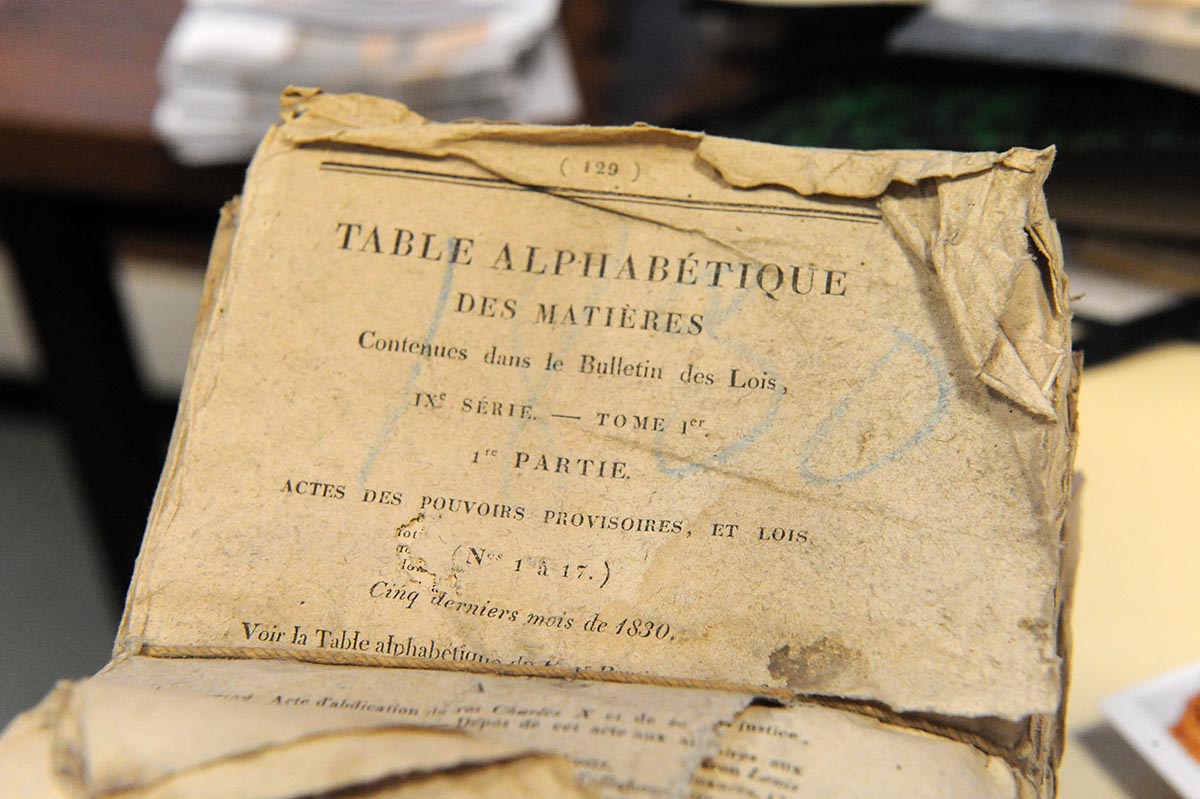 ( 129 )
TABLE ALPHABÉTIQUE
DES MATIÈRES
Contenues dans le Bulletin des Lois,
IXe SÉRIE. — TOME Ier.
1re PARTIE.
ACTES DES POUVOIRS PROVISOIRES, ET LOIS.
(Nos 1 à 17.)
Cinq derniers mois de 1830.
Voir la Table alphabétique
Acte d'abdication roi Charles X et de justice,
Dépôt de cet acte aux aux